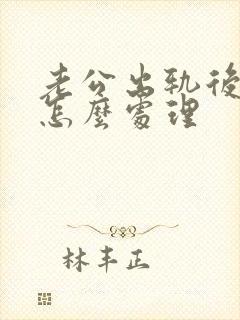 老公出轨後
怎麼處理
林丰正